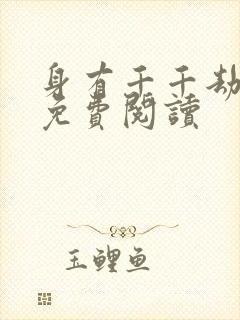 身有千千劫
免費閱讀
玉鯉魚